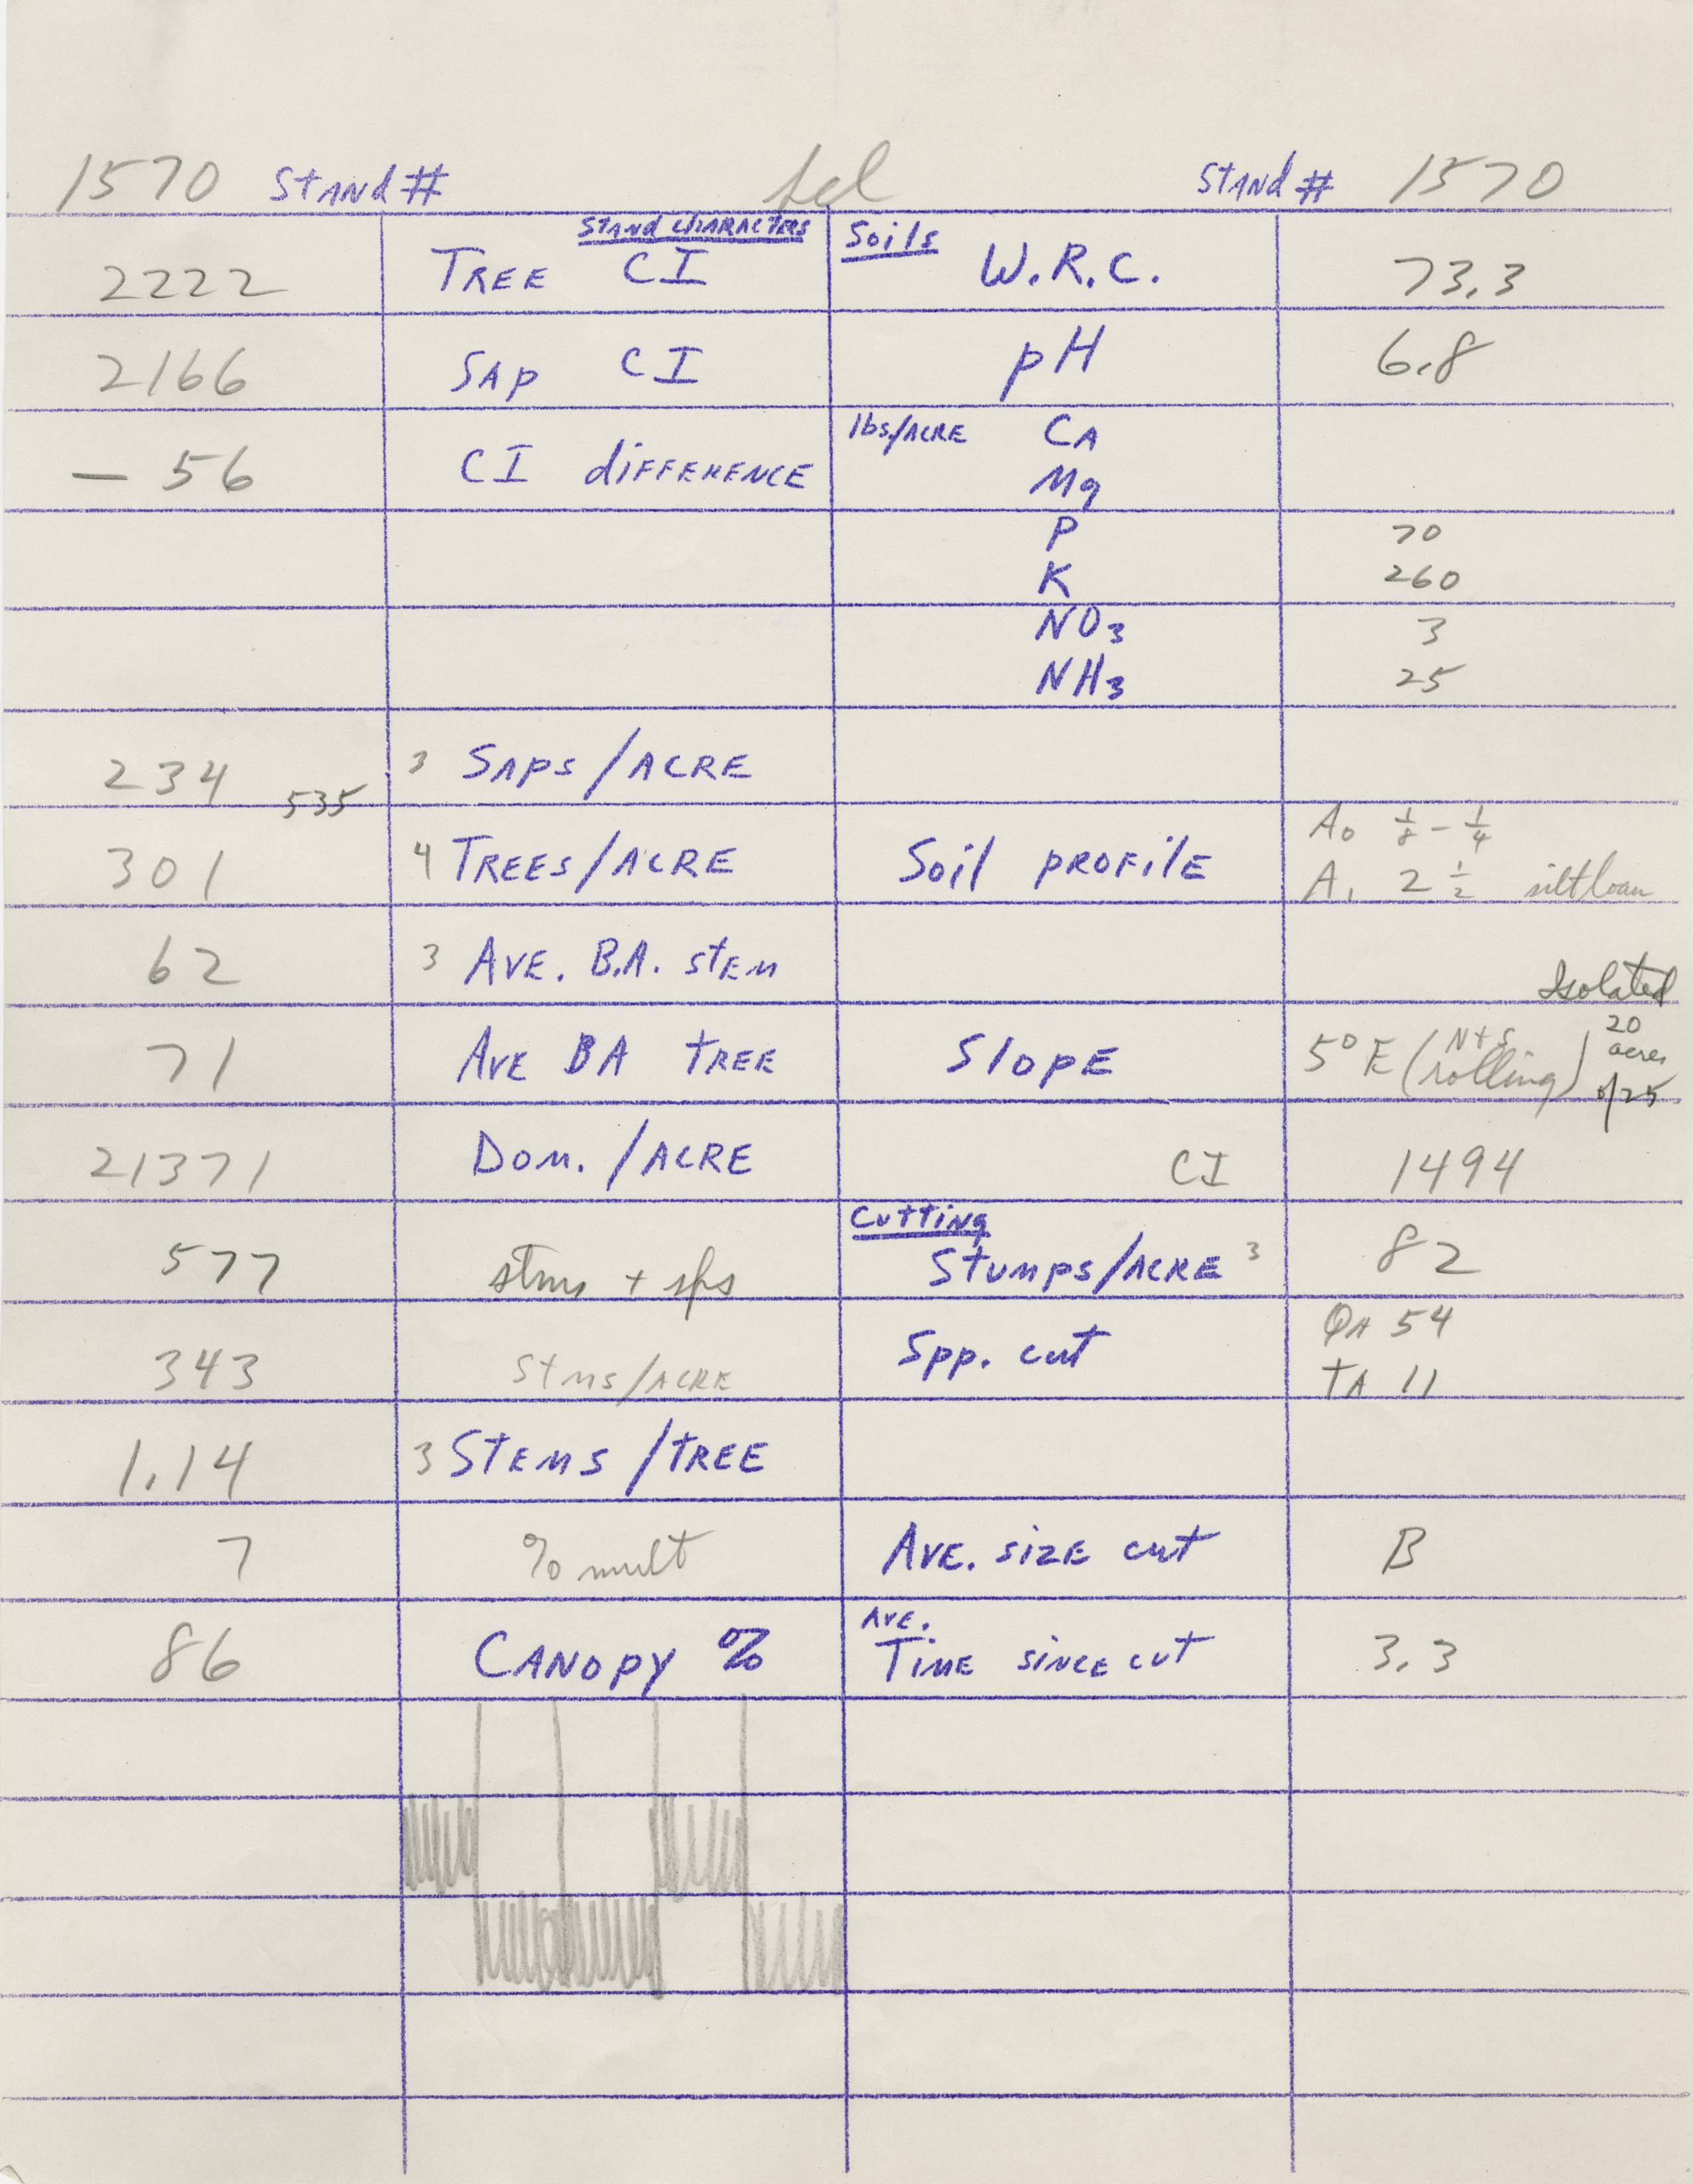 1570 Stand # Sel Stand # 1570
Stand Characters Soils
2222 Tree CI W.R.C. 73.3
2166 Sap CI pH 6.8
lbs/Acre Ca
- 56 CI difference Mg
P 70
K 260
NO3 3
NH3 25
234 3 Saps/Acre
535
A0 1/8 - 1/4
301 4 Trees/Acre Soil profile A1 2 1/2 silt loam
62 3 Ave. B.A. stem
Isolated
71 Ave BA tree Slope 5° E (N+S rolling) 20 acres of 25
21371 Dom. /Acre CI 1494
Cutting
577 stms + sps Stumps/Acre 3 82
QA 54
343 Stms/Acre Spp. cut
TA 11
1.14 3 Stems /tree
7 % mult Ave. size cut B
Ave.
86 Canopy % Time since cut 3.3